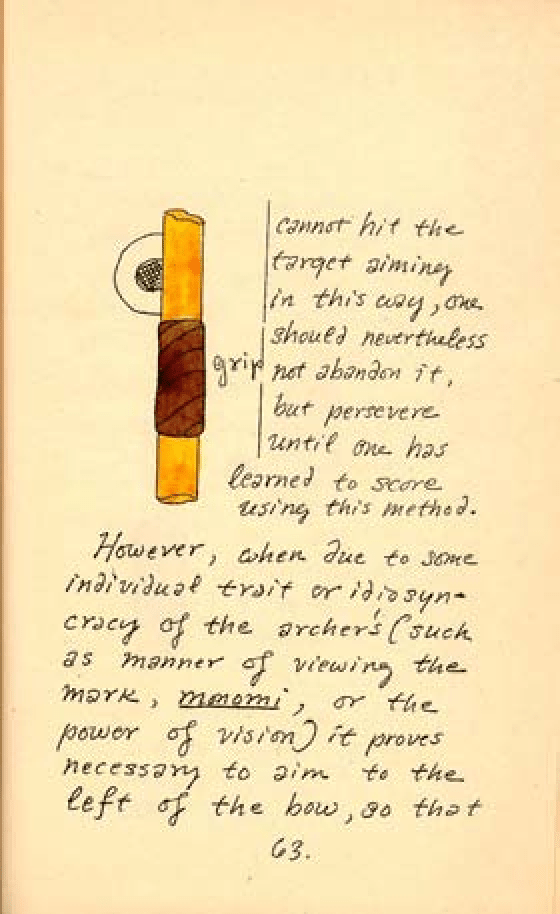 cannot hit the
target aiming
in this way, one
should nevertheless
grip
not abandon it,
but persevere
until one has
learned to score
using this method.
However, when due to some
individual trait or idiosyn-
cracy of the archer's (such
as manner of viewing the
mark, monomi, or the
power of vision) it proves
necessary to aim to the
left of the bow, so that
63.